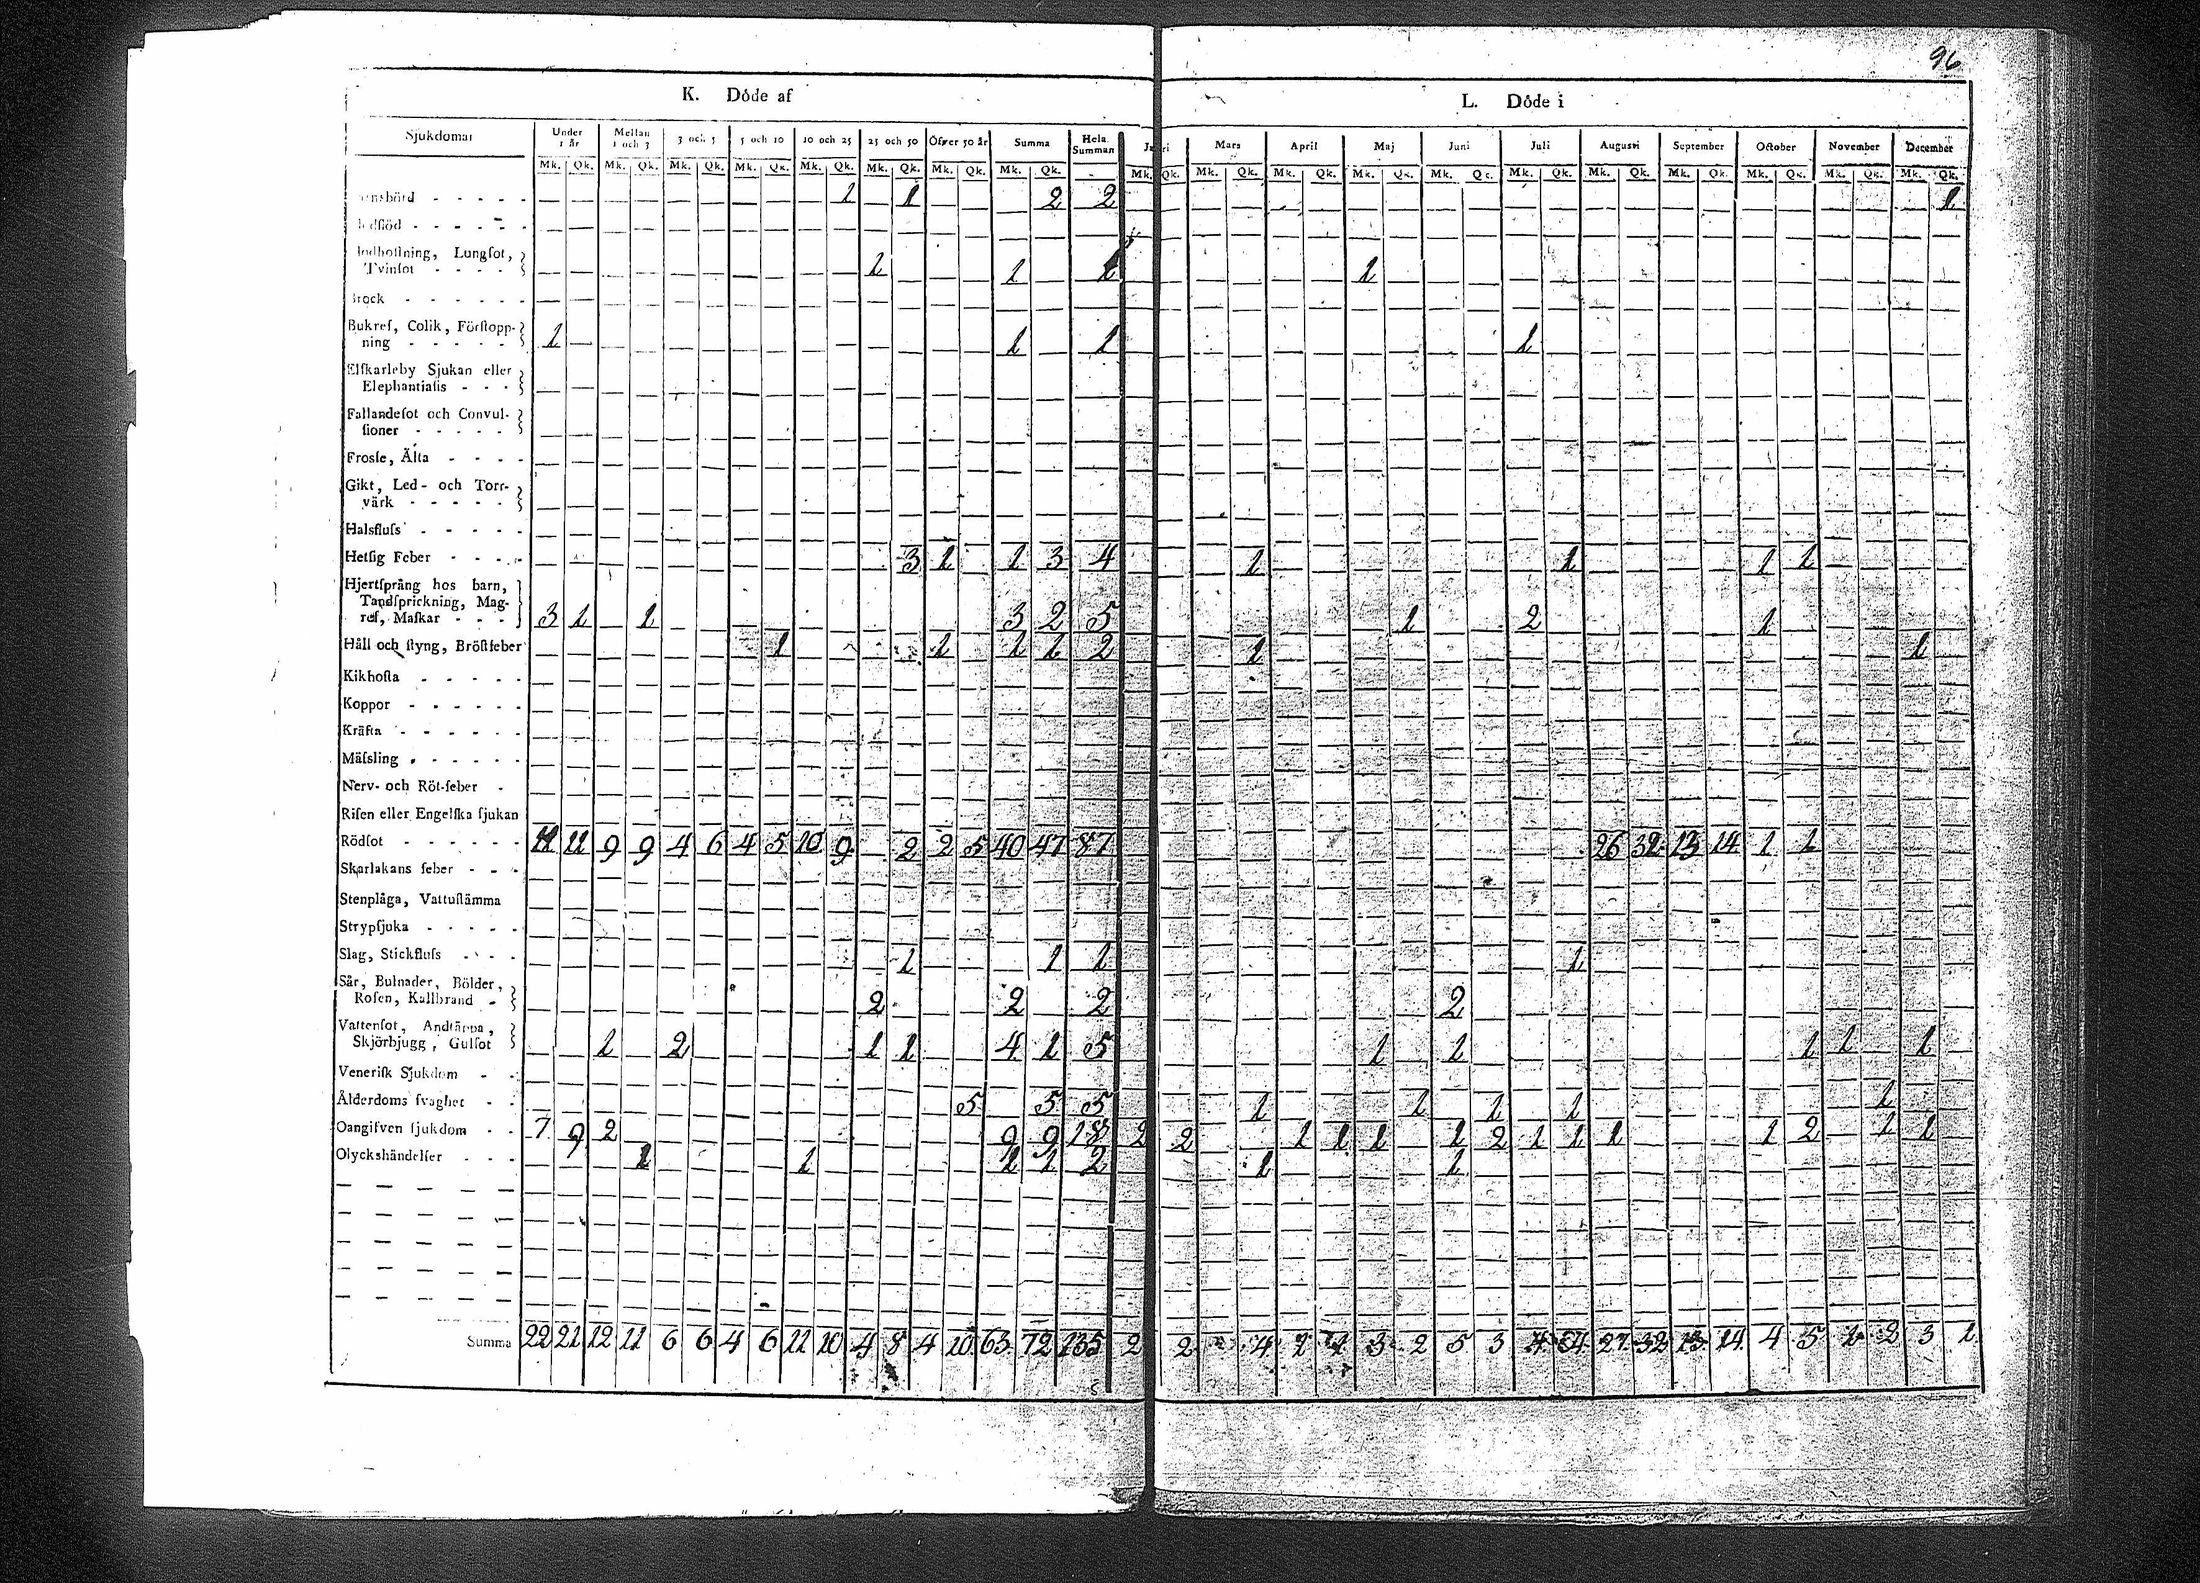 96
K. Döde af
L. Döde i
Sjukdomar Under 1 år Mellan 1 och 3 3 och 5 5 och 10 10 och 25 25 och 50 Öfver 50 år Summa Hela Summan Mars April Maj Juni Juli Augusti September October November December
Mk. Qk. Mk. Qk. Mk. Qk. Mk. Qk. Mk. Qk. Mk. Qk. Mk. Qk. Mk. Qk. Mk. Qk. Mk. Qk. Mk. Qk. Mk. Qk. Mk. Qk. Mk. Qk. Mk. Qk. Mk. Qk. Mk. Qk. Mk. Qk. Mk. Qk.
1 1 2 2 1
Lungſot,
Tvinſot 1 1 1 1
Brock
Bukref, Colik, Förſtopp-
ning 1 1 1 1
Elfkarleby Sjukan eller
Elephantiaſis
Fallandeſot och Convul-
ſioner
Froſſe, Älta
Gikt, Led- och Torr-
värk
Halsfluſs
Hetſig Feber 3 1 1 3 4 1 1 1 1
Hjertſprång hos barn,
Tandſprickning, Mag-
ref, Maſkar 3 1 1 3 2 5 1 2 1
Håll och ſtyng, Bröſtfeber 1 1 1 1 2 1 1
Kikhoſta
Koppor
Kräfta
Mäſsling
Nerv- och Röt-feber
Riſen eller Engelſka ſjukan
Rödſot 11 11 9 9 4 6 4 5 10 9 2 2 5 40 47 87 26 32 13 14 1 1
Skarlakans feber
Stenplåga, Vattuſtämma
Strypſjuka
Slag, Stickfluſs 1 1 1 1
Sår, Bulnader, Bölder,
Roſen, Kallbrand 2 2 2 2
Vattenſot, Andtäppa,
Skjörbjugg, Gulſot 1 2 1 1 4 1 5 1 1 1 1 1
Veneriſk Sjukdom
Ålderdoms ſvaghet 5 5 5 1 1 1 1 1
Oangifven ſjukdom 7 9 2 9 9 18 2 2 1 1 1 1 2 1 1 1 1 2 1 1
Olyckshändelſer 1 1 1 1 2 1 1
Summa 22 21 12 11 6 6 4 6 11 10 4 8 4 10 63 72 135 2 2 4 1 1 3 2 5 3 4 4 27 32 13 14 4 5 1 2 3 1